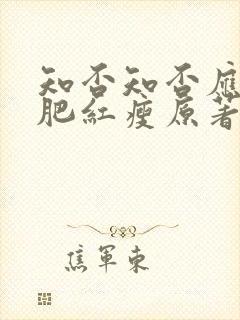 知否知否應
肥紅瘦原著
焦軍東